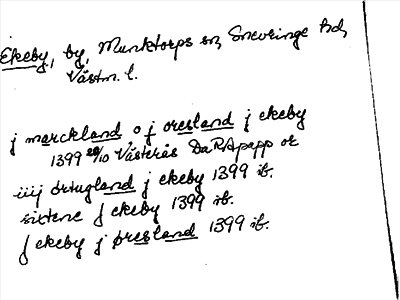 Ekeby, by, Munktorps sn, Snevringe hd,
Västm. l.
j marckland o j oresland j ekeby
1399 20/10 Västerås DaRApapp or
iiij ørtugland j ekeby 1399 ib.
sixtene j ekeby 1399 ib.
j ekeby j øresland 1399 ib.